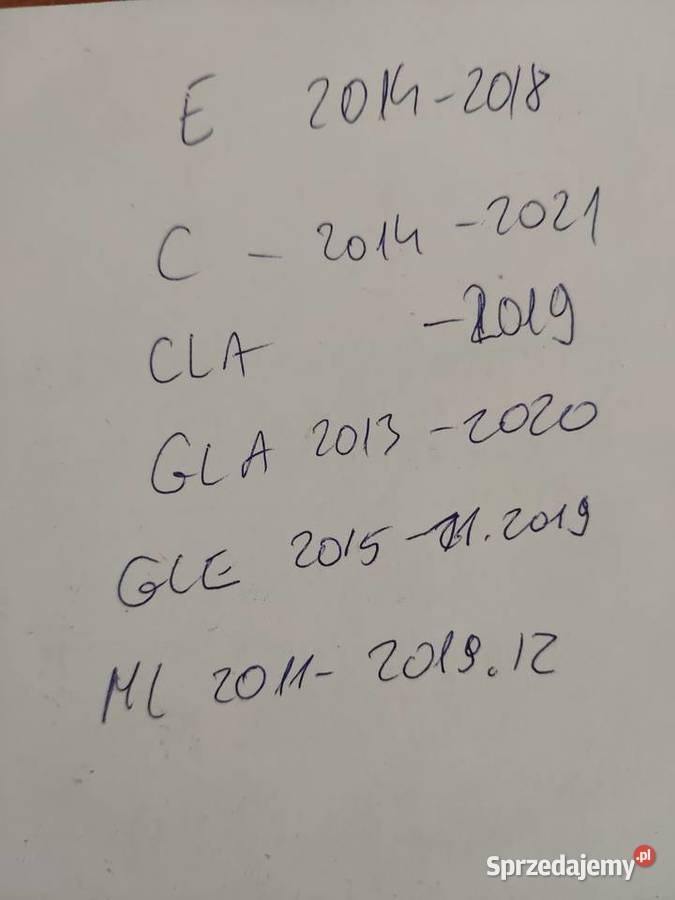 E 2014-2018
C - 2014 - 2021
CLA - 2019
GLA 2013 - 2020
GLE 2015 - 11.2019
ML 2011- 2019.12
Sprzedajemy.pl